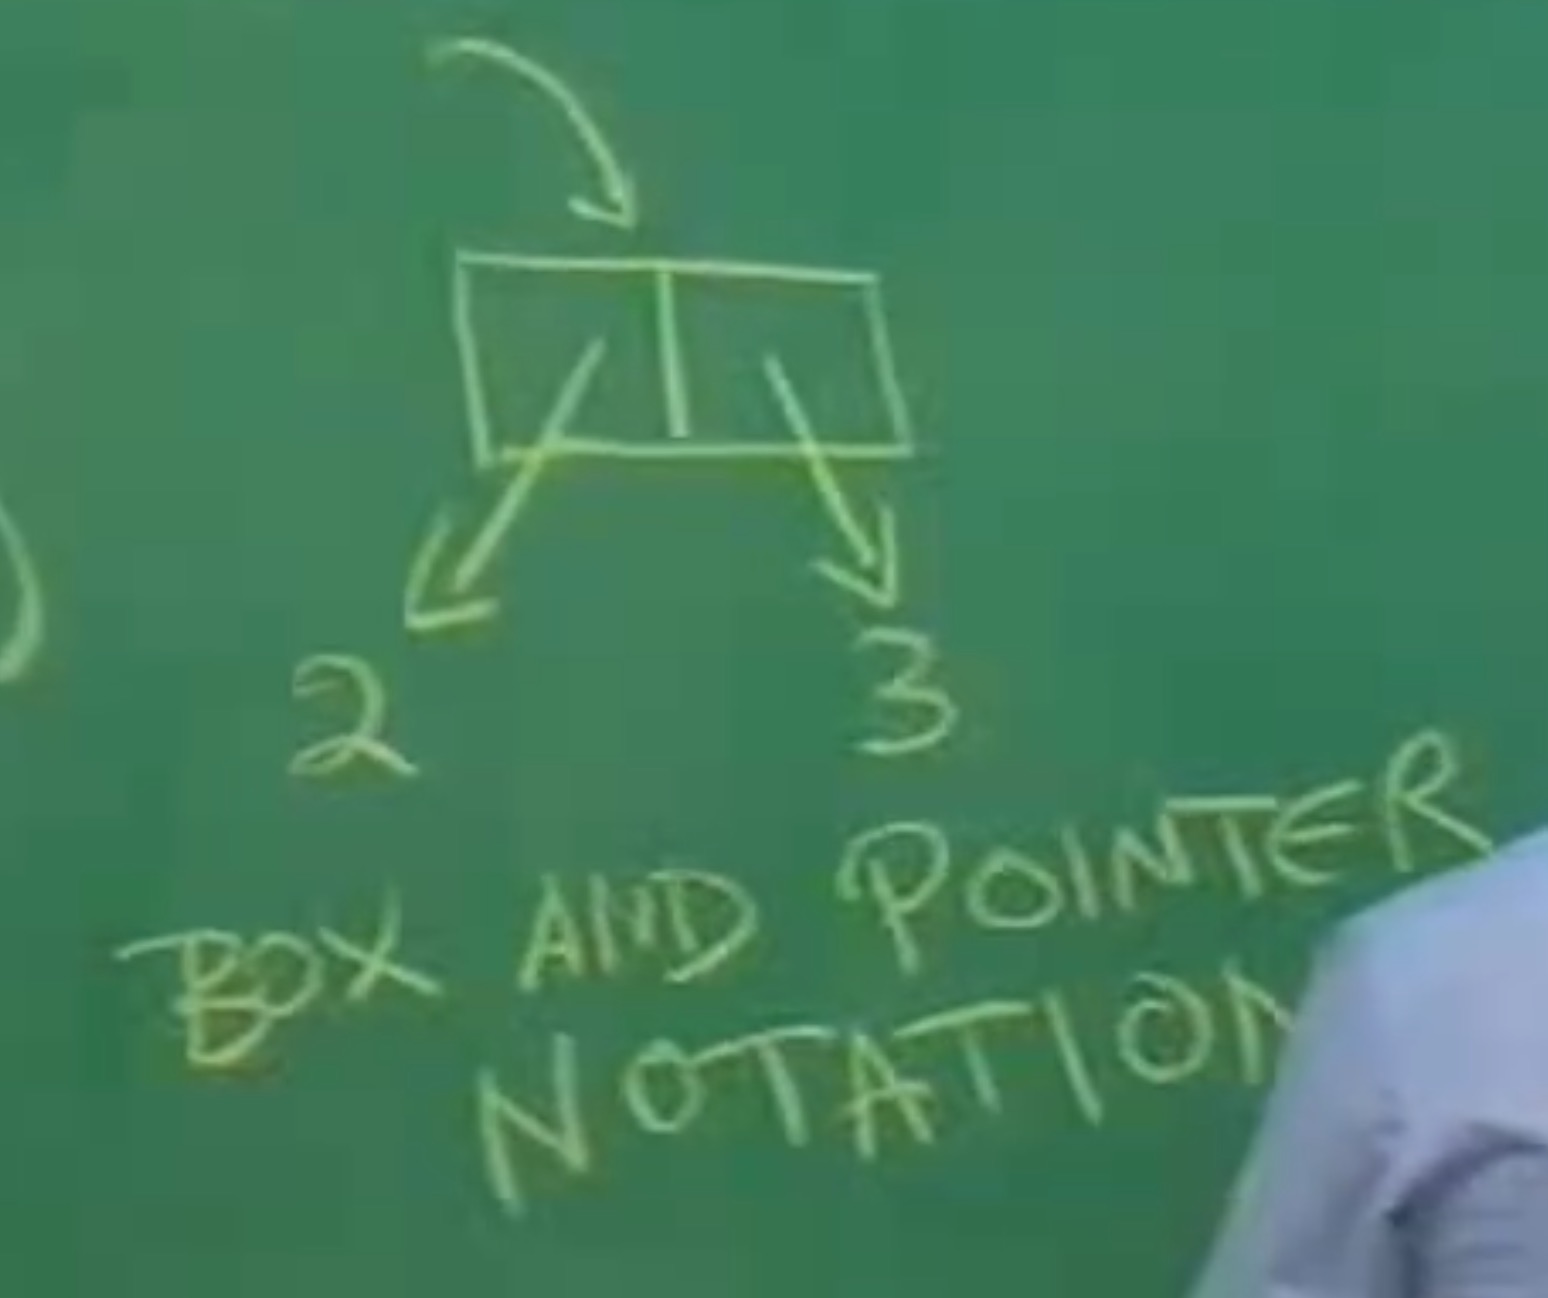 2 3
BOX AND POINTER
NOTATION